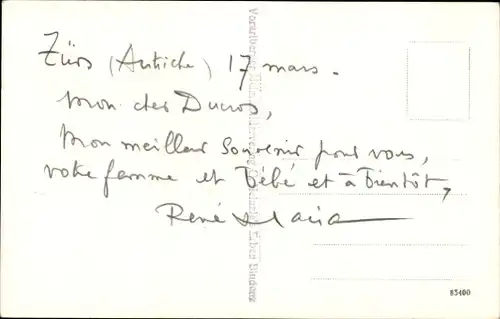 Zürs (Autriche) 17 mars.
Mon cher Ducros,
Mon meilleur souvenir pour vous,
votre femme et Bébé et à bientôt,
René Maria
83400